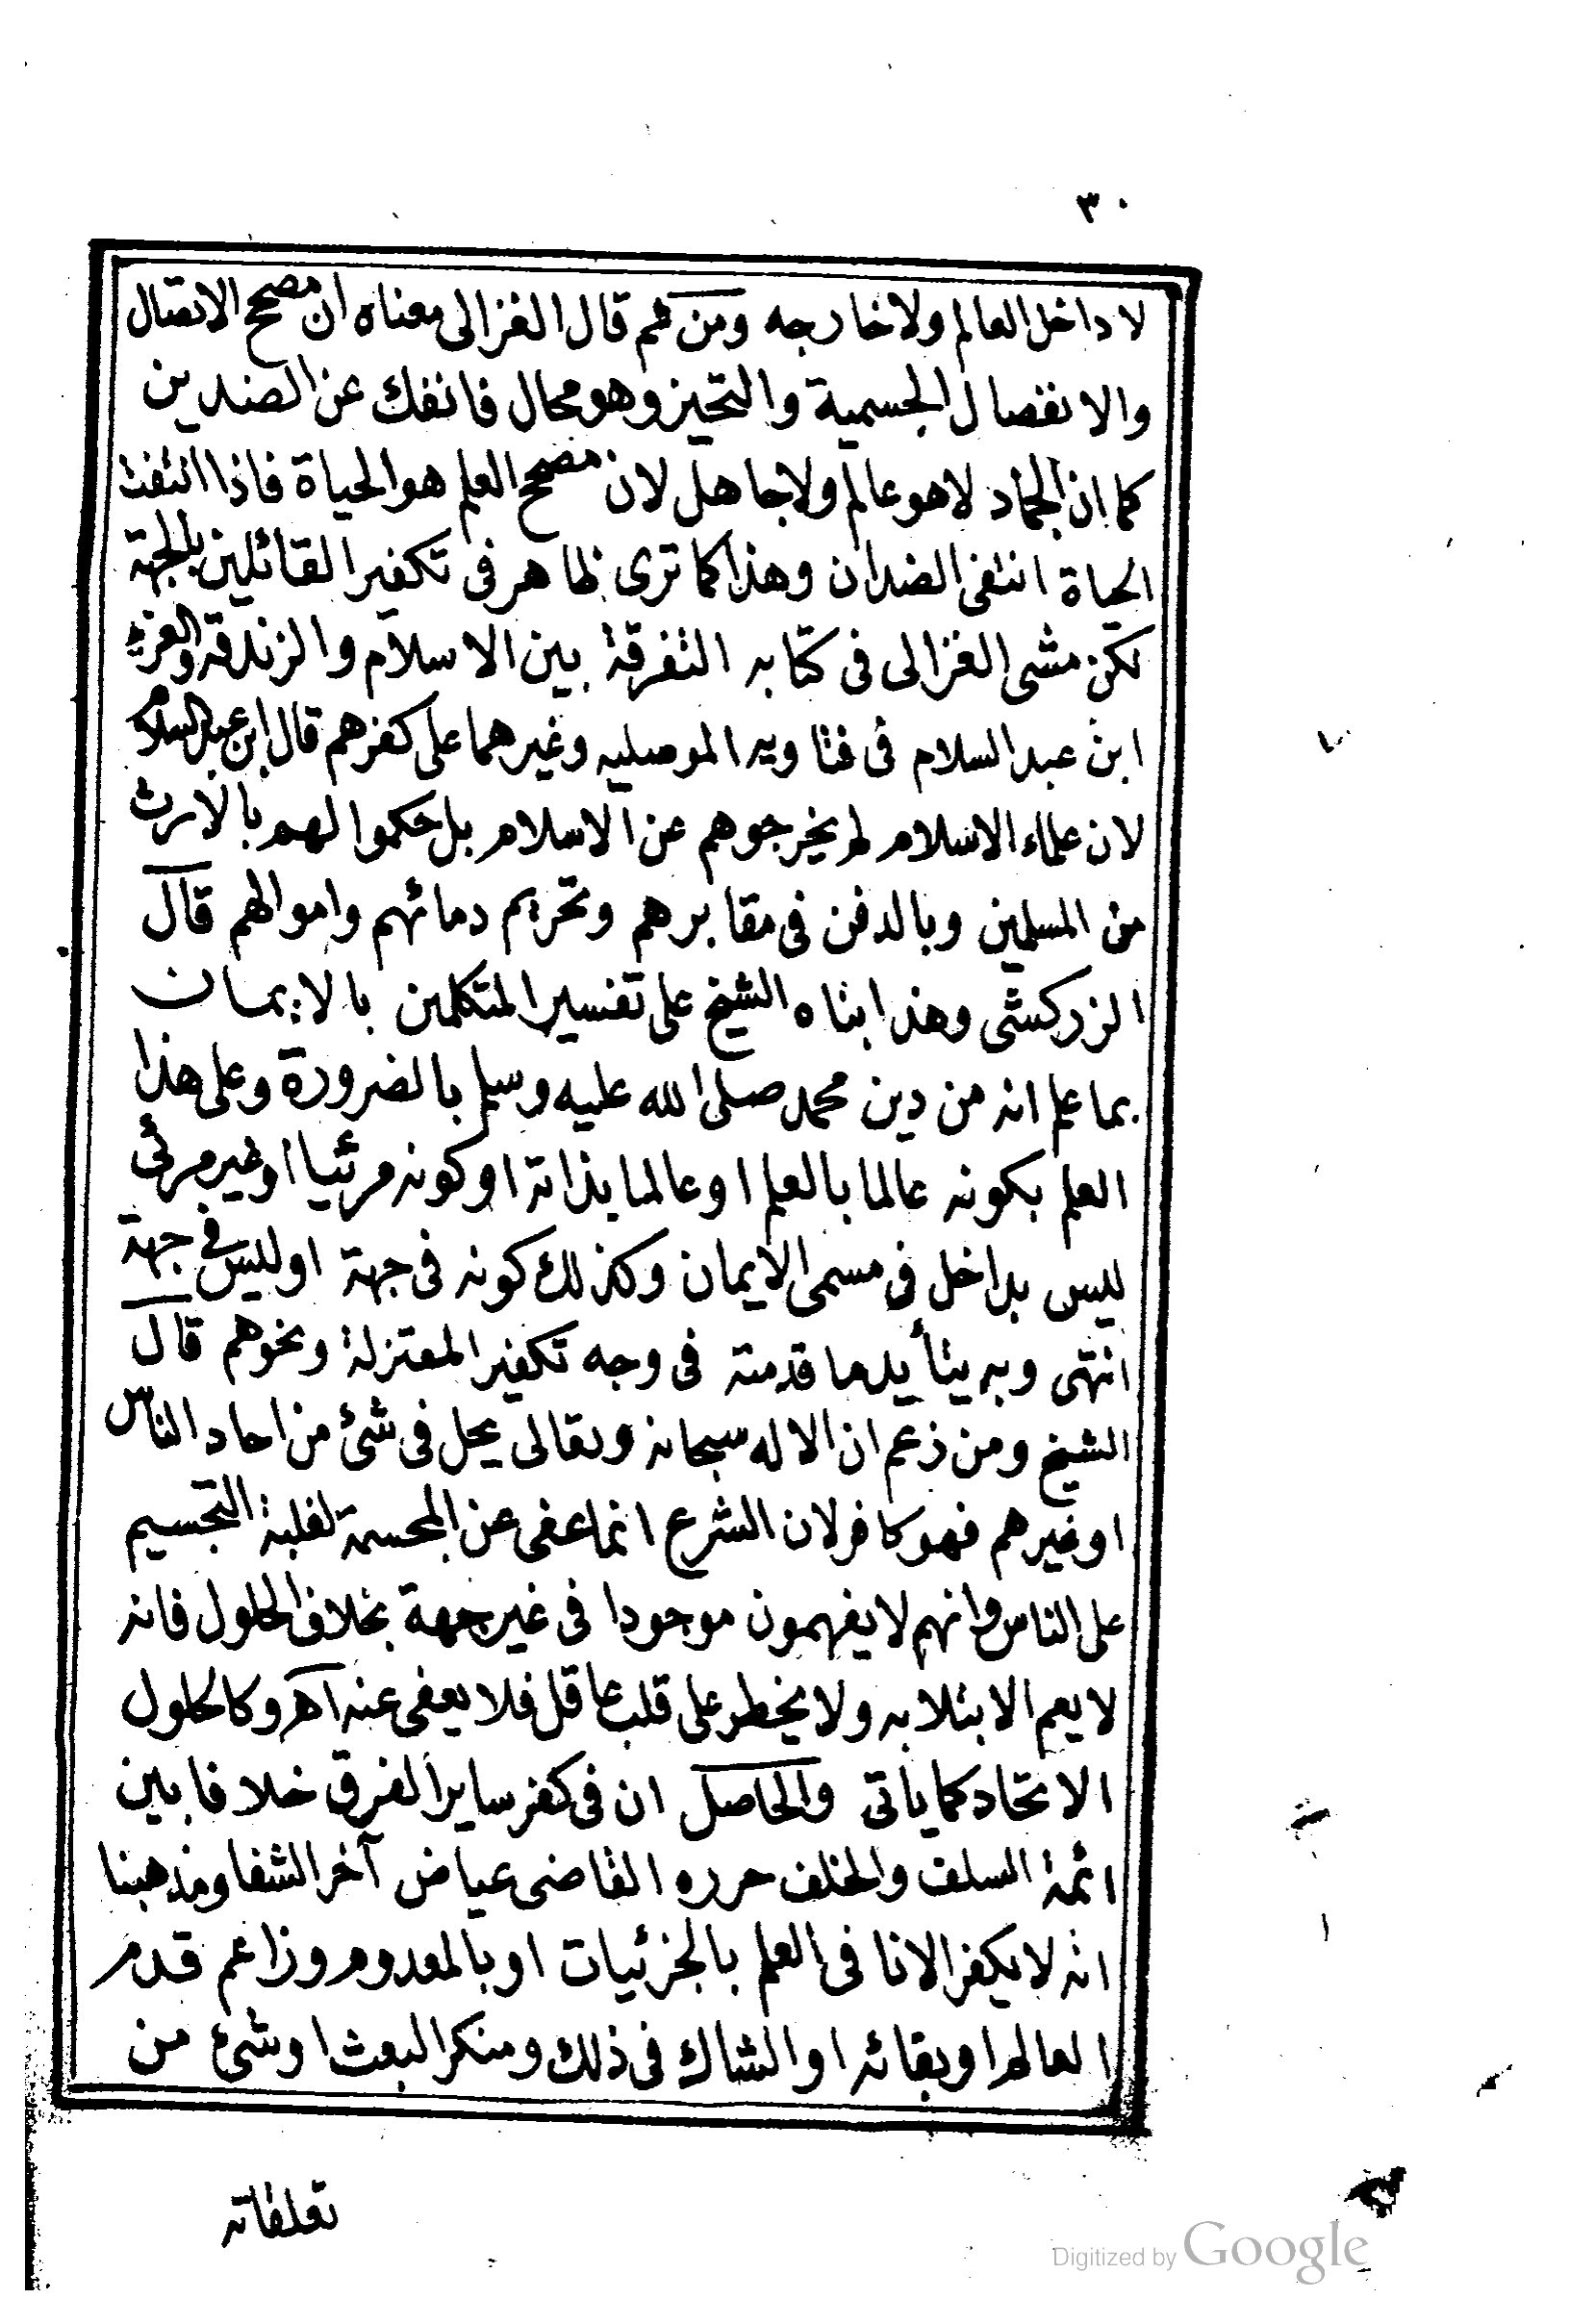 ٣٠
لا داخل العالم ولا خارجه ومن ثم قال الغزالى معناه ان مصحح الاتصال
والانفصال الجسمية والتحيز وهو محال فانفك عن الضدين
كما ان الجماد لا هو عالم ولا جاهل لان مصحح العلم هو الحياة فاذا انتفت
الحياة انتفى الضدان وهذا كما ترى ظاهر فى تكفير القائلين بالجهة
لكن مشى الغزالى فى كتابه التفرقة بين الاسلام والزندقة والعز
ابن عبد السلام فى فتاويه الموصليه وغيرهما على كفرهم قال ابن عبد السلام
لان علماء الاسلام لم يخرجوهم عن الاسلام بل حكموا لهم بالارث
من المسلمين وبالدفن فى مقابرهم وتحريم دمائهم واموالهم قال
الزركشى وهذا بناه الشيخ على تفسير المتكلمين بالايمان
بما علم انه من دين محمد صلى الله عليه وسلم بالضرورة وعلى هذا
العلم بكونه عالما بالعلم او عالما بذاته او كونه مرئيا او غير مرئى
ليس بداخل فى مسمى الايمان وكذلك كونه فى جهة او ليس فى جهة
انتهى وبه يتأيد ما قدمته فى وجه تكفير المعتزلة ونحوهم قال
الشيخ ومن زعم ان الاله سبحانه وتعالى يحل فى شئ من احاد الناس
او غيرهم فهو كافر لان الشرع انما عفى عن المجسمة لغلبة التجسيم
على الناس وانهم لا يفهمون موجودا فى غير جهة بخلاف الحلول فانه
لا يعم الابتلا به ولا يخطر على قلب عاقل فلا يعفى عنه اهـ وكالحلول
الاتحاد كما ياتى والحاصل ان فى كفر ساير الفرق خلافا بين
ائمة السلف والخلف حرره القاضى عياض آخر الشفا ومذهبنا
انه لا يكفر الا نا فى العلم بالجزئيات او بالمعدوم وزاعم قدم
العالم او بقائه او الشاك فى ذلك ومنكر البعث او شئ من
تعلقاته
Digitized by Google